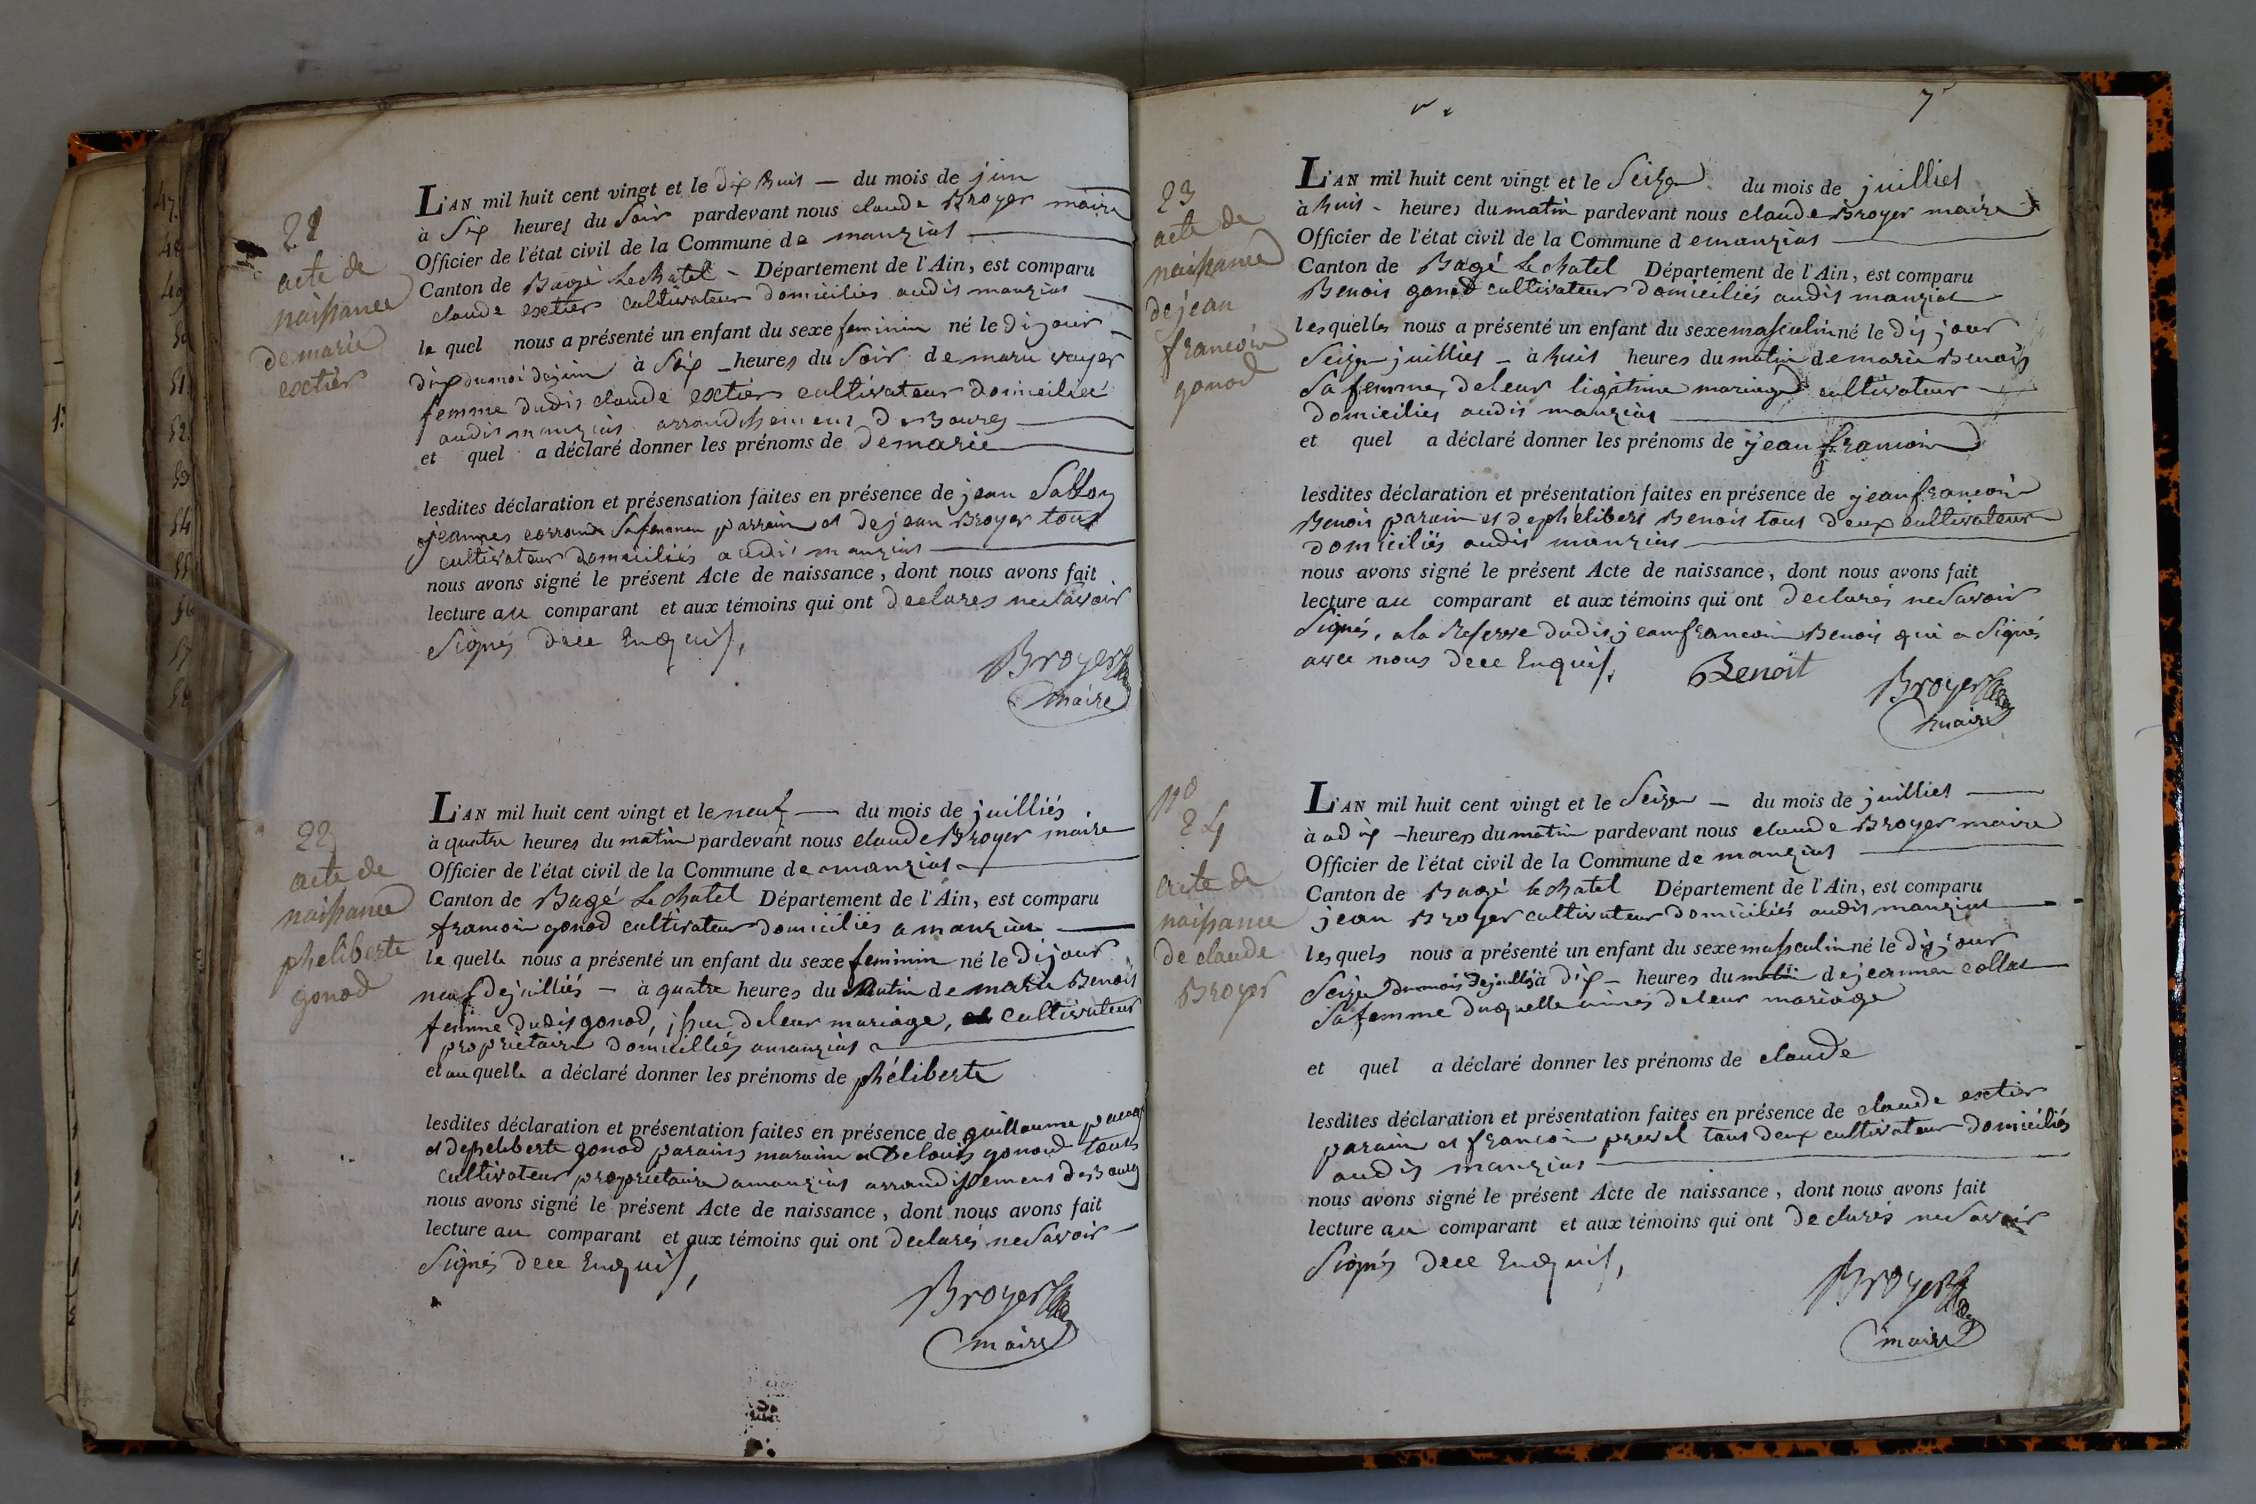 47.
48
49
50
51
52
53
54
55
56
57
58
21
acte de
naissance
de marie
extier
L'AN mil huit cent vingt et le dix huit — du mois de juin
à Six heures du Soir pardevant nous claude Broyer maire
Officier de l'état civil de la Commune de manzias
Canton de Bagé Le chatel - Département de l'Ain, est comparu
claude extier cultivateur domiciliés audis manzias
le quel nous a présenté un enfant du sexe feminin né le dijour
dix du moi dejuin à Six heures du Soir de marie vayer
femme dudis claude extier cultivateur domiciliée
audis manzias arrondissement de Bourg
et quel a déclaré donner les prénoms de demarie
lesdites déclaration et présensation faites en présence de jean Sallon
jeannes Safemmen parrain et dejean Broyer tous
cultivateur domiciliés audis manzias
nous avons signé le présent Acte de naissance, dont nous avons fait
lecture au comparant et aux témoins qui ont declares ne Savoir
Signés dece Enquis,
Broyer
maire
22
acte de
naissance
pheliberte
gonod
L'AN mil huit cent vingt et le neuf — du mois de juilliés
à quatre heures du matin pardevant nous claude Broyer maire
Officier de l'état civil de la Commune de manzias
Canton de Bagé Le chatel Département de l'Ain, est comparu
francoin gonod cultivateur domiciliés a manzias
le quelle nous a présenté un enfant du sexe feminin né le dijour
neuf dejuilliés — à quatre heures du Matin de marie Benois
femme dudis gonod, issu deleur mariage, cultivateur
proprietaire domicilliés amanzias
et au quelle a déclaré donner les prénoms de phéliberte
lesdites déclaration et présentation faites en présence de guillaume
et depheliberte gonod parains maraine et Delouis gonod tous
cultivateur proprietaire amanzias arrondissemens deBourg
nous avons signé le présent Acte de naissance, dont nous avons fait
lecture au comparant et aux témoins qui ont declarés ne Savoir
Signés dece Enquis,
Broyer
maire
7
23
acte de
naissance
de jean
francoin
gonod
L'AN mil huit cent vingt et le Seize du mois de juillies
à huis - heures du matin pardevant nous claude Broyer maire
Officier de l'état civil de la Commune de manzias
Canton de Bagé Le chatel Département de l'Ain, est comparu
Benois gonod cultivateur domiciliés audis manzias
lesquelles nous a présenté un enfant du sexe masculin né le dis jour
Seize juillies — à huis heures du matin de marie Benois
Sa femme, deleur ligitime mariage cultivateur
domicilies audis manzias
et quel a déclaré donner les prénoms de jean francoin
lesdites déclaration et présentation faites en présence de jean francoin
Benois parain et dephélibers Benois tous deux cultivateur
domiciliés audis manzias
nous avons signé le présent Acte de naissance, dont nous avons fait
lecture au comparant et aux témoins qui ont declarés ne Savoir
Signés, ala Reserve dudis jeanfrancoin Benois qui a Signés
avec nous dece Enquis,
Benoit
Broyer
maire
No
24
acte de
naissance
de claude
Broyer
L'AN mil huit cent vingt et le Seize — du mois de juillies
à adix heures du matin pardevant nous claude Broyer maire
Officier de l'état civil de la Commune de manzias
Canton de Bagé le chatel Département de l'Ain, est comparu
jean Broyer cultivateur domiciliés audis manzias
lesquels nous a présenté un enfant du sexe masculin né le dis jour
Seize du mois dejuillés à dix — heures du matin dejeannen collas
Sa femme duquelle deleur mariage
et quel a déclaré donner les prénoms de claude
lesdites déclaration et présentation faites en présence de claude extier
parain et francoin prevel tous deux cultivateur domiciliés
audis manzias
nous avons signé le présent Acte de naissance, dont nous avons fait
lecture au comparant et aux témoins qui ont declarés ne Savoir
Signés dece Enquis,
Broyer
maire